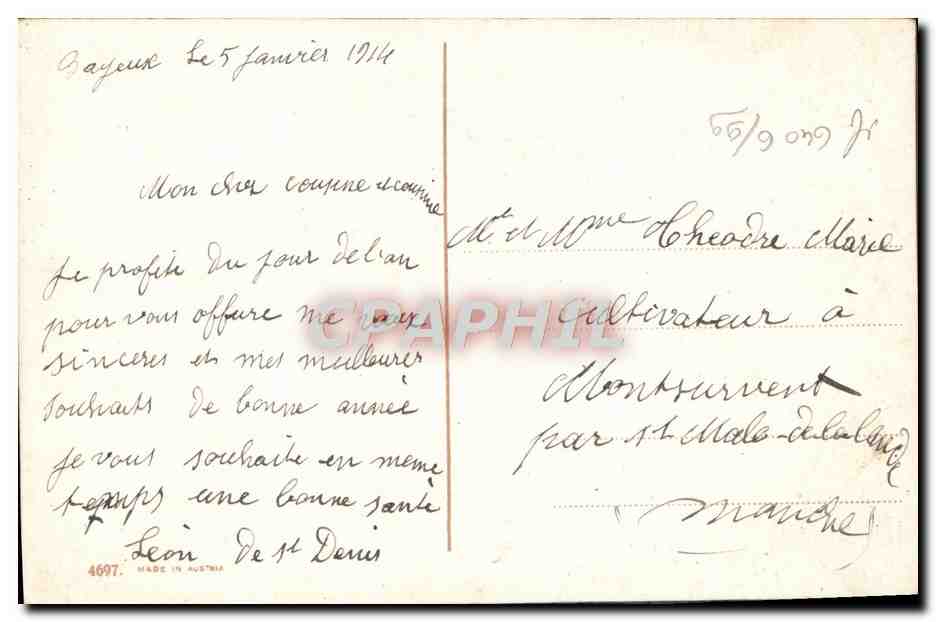 Bayeux le 5 janvier 1914
Mon cher cousine et cousine
Je profite du jour de l'an
pour vous offure me vœux
sinceres et mes meilleurer
souhaits de bonne année
je vous souhaite en meme
temps une bonne santé
Léon de st Denis
4697. MADE IN AUSTRIA
CPAPHIL
Mr et Mme Theodre Marie
cultivateur à
Montsurvent
par st Malo-de la lande
(manche)